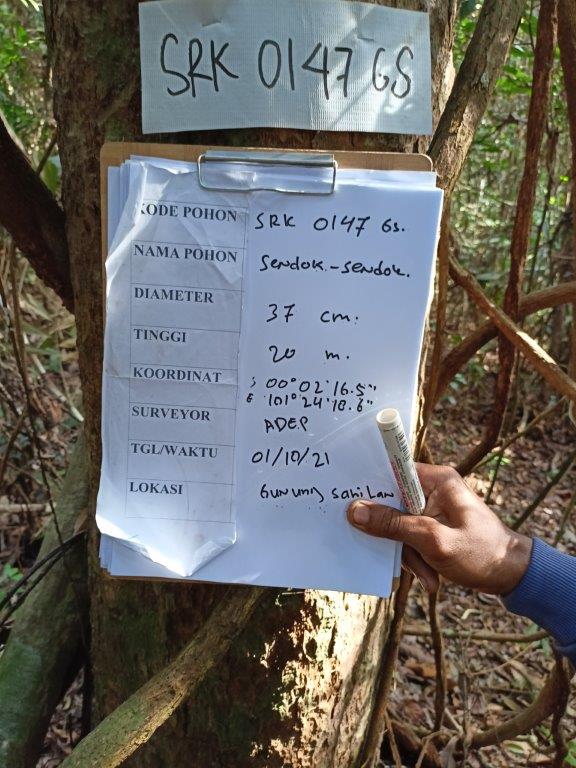 SRK 0147 GS
KODE POHON SRK 0147 GS.
NAMA POHON Sendok-sendok.
DIAMETER 37 cm.
TINGGI 20 m.
KOORDINAT S 00°02'16.5"
E 101°24'18.6"
SURVEYOR ADEP
TGL/WAKTU 01/10/21
LOKASI Gunung Sahilan